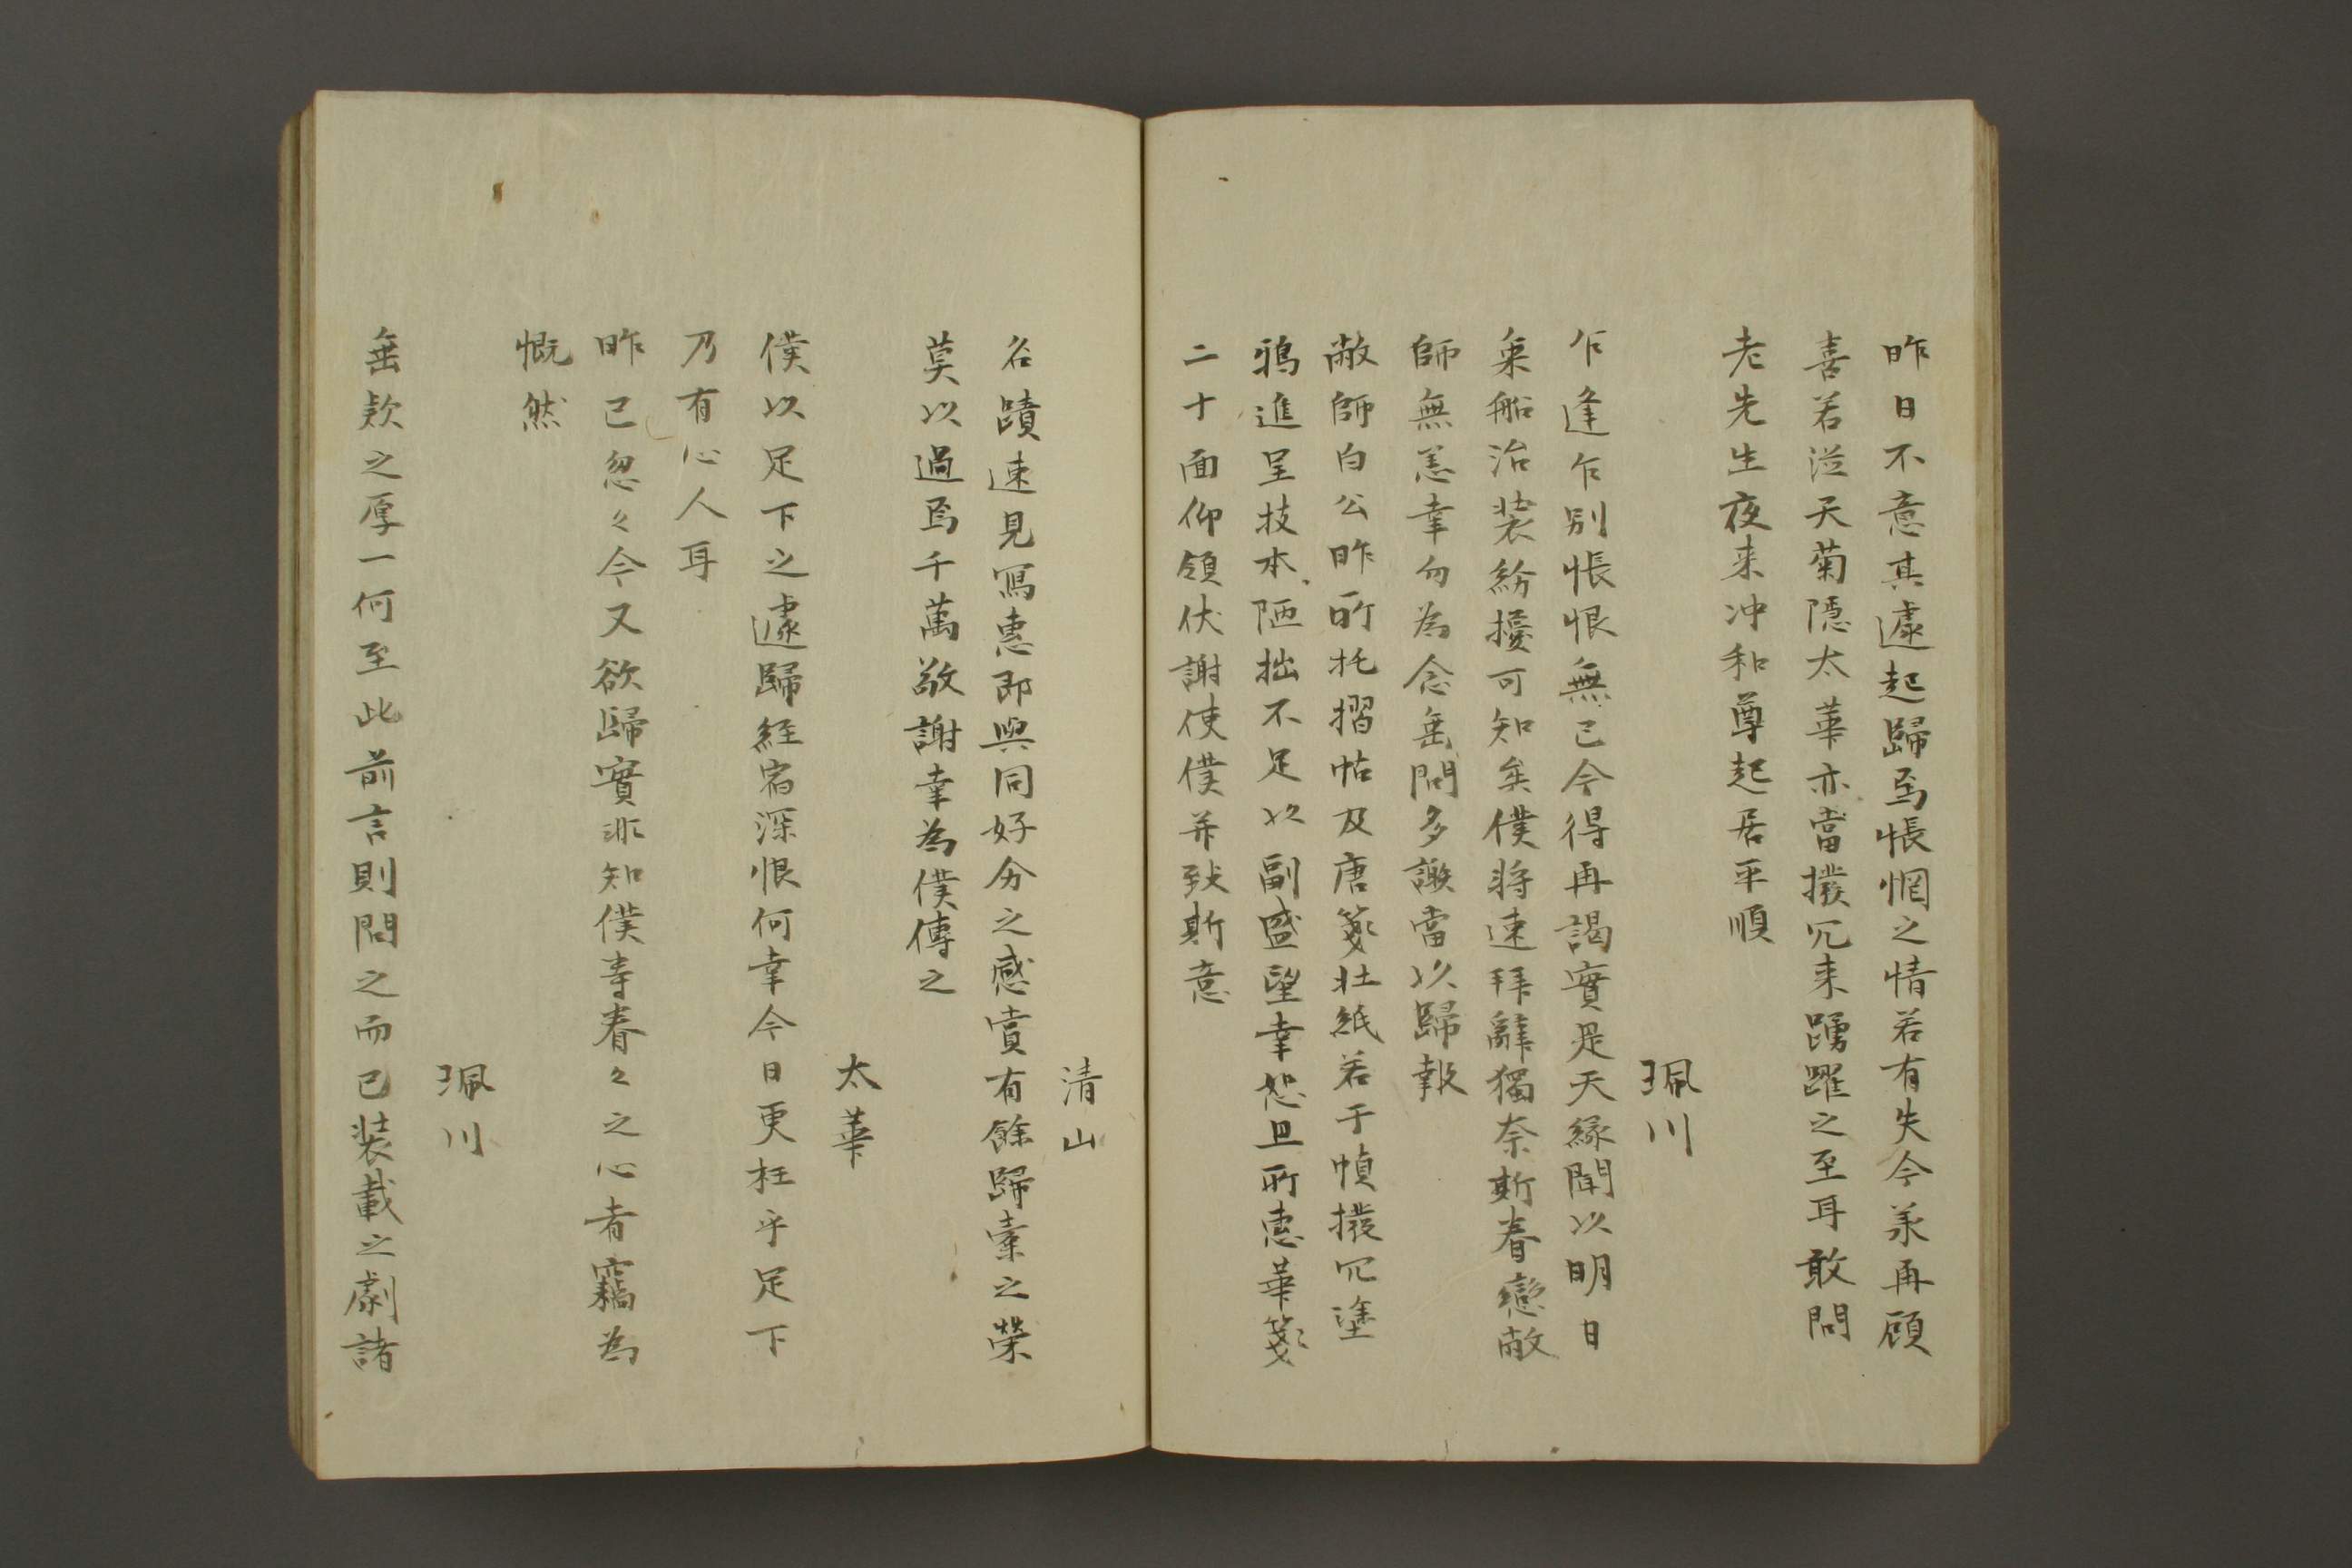 昨日不意其遽起歸焉悵惘之情若有失今承再顧
喜若從天菊隱太華亦當撥冗来踴躍之至耳敢問
老先生夜来冲和尊起居平順
珮川
乍逢乍別悵恨無已今得再謁實是天緣聞以明日
乗船治装紛擾可知矣僕將速拜辭獨奈斯眷戀敝
師無恙幸勿為念垂問多謝當以歸報
敝師白公昨所托摺帖及唐箋壮紙若干幀撥冗塗
鴉進呈技本陋拙不足以副盛望幸恕且所惠華箋
二十面仰領伏謝使僕并致斯意
清山
名蹟速見冩惠即與同好分之感賞有餘歸槖之榮
莫以過焉千萬敬謝幸為僕傳之
太華
僕以足下之遽歸経宿深恨何幸今日更枉乎足下
乃有心人耳
昨已忽々今又欲歸實非知僕寺眷々之心者竊為
慨然
珮川
垂欵之厚一何至此前言則問之而已装載之劇諸